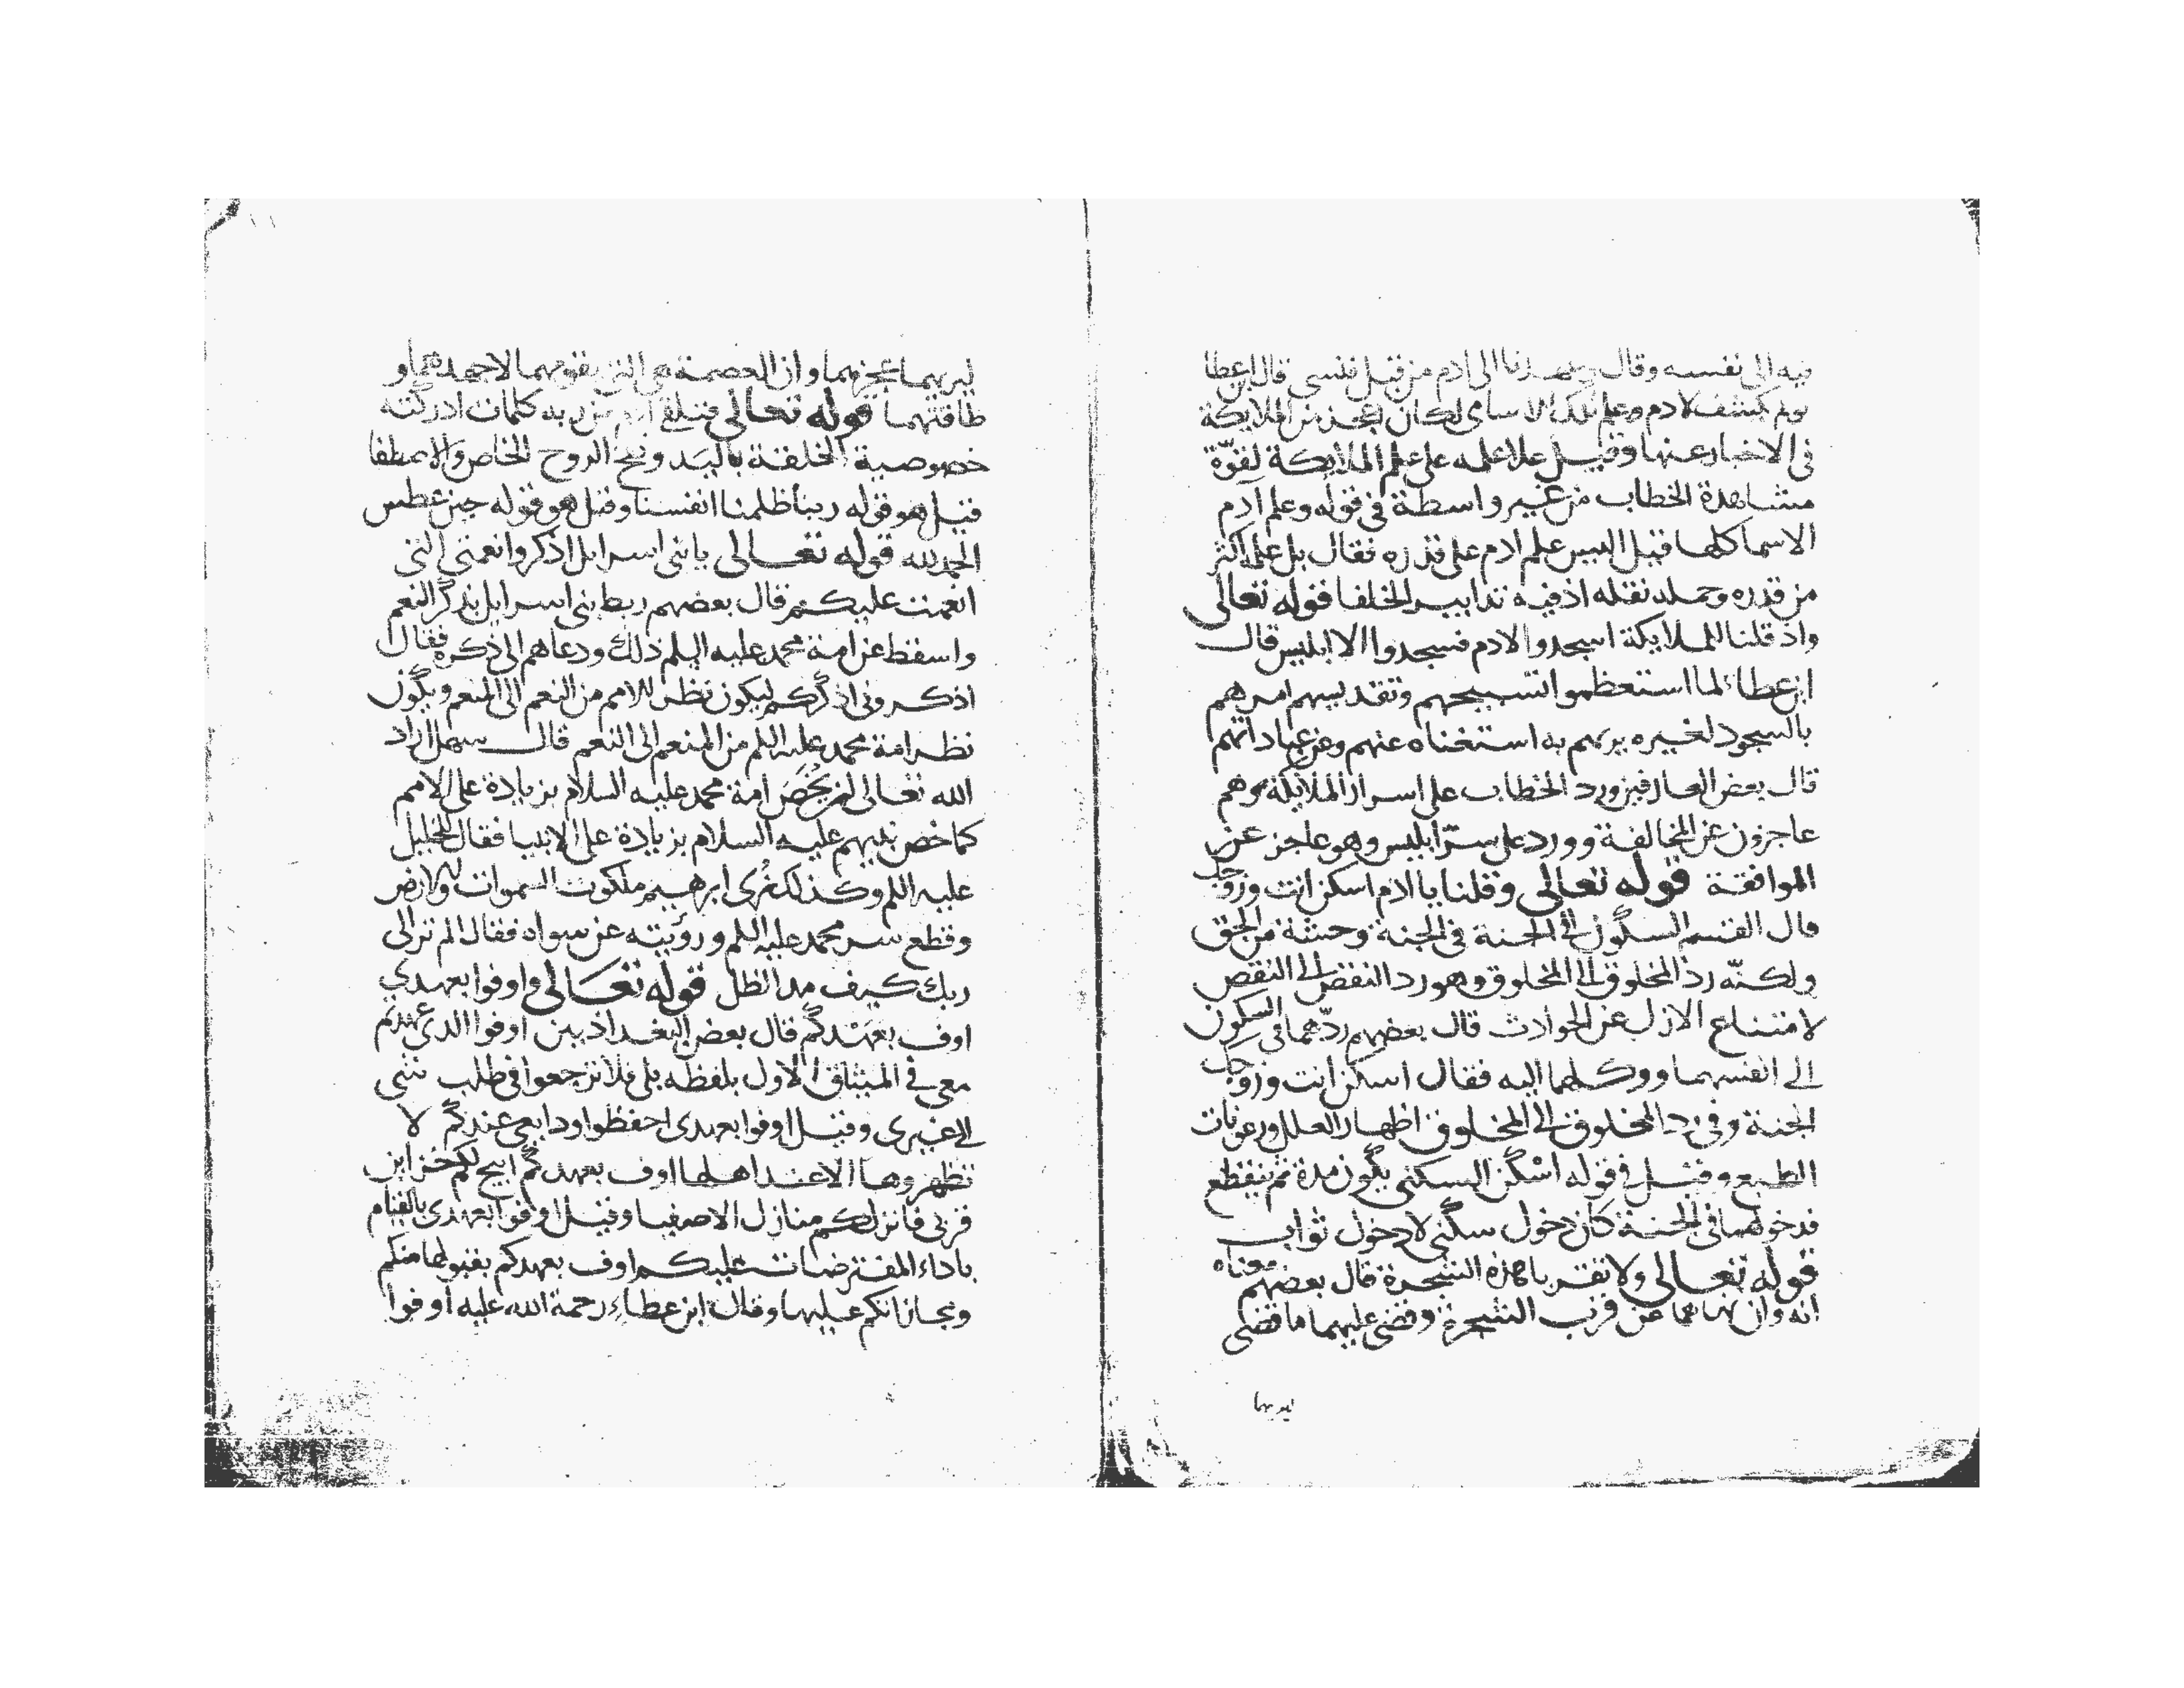 فيه الى نفسه وقال ولقد عهدنا الى ادم من قبل فنسى قال ابن عطا
لو لم يكشف لادم علم تلك الاسامى لكان اعجز من الملايكة
فى الاخبار عنها وقيل علا علمه على علم الملايكة لقوّة
مشاهدة الخطاب من غير واسطة فى قوله وعلم ادم
الاسما كلها قيل اليس علم ادم على قدره فقال بل علم اكثر
من قدره وحمله ثقله اذ فيه تدابير الخلفا قوله تعالى
واذ قلنا للملايكة اسجدوا لادم فسجدوا الا ابليس قال
ابن عطا لما استعظموا تسبيحهم وتقديسهم امرهم
بالسجود لغيره يريهم به استغناه عنهم وعن عباداتهم
قال بعض العارفين ورد الخطاب على اسرار الملايكة وهم
عاجزون عن المخالفة وورد على سرّ ابليس وهو عاجز عن
الموافقة قوله تعالى وقلنا يا ادم اسكن انت وزوجك
قال القسم السكون الى الجنة فى الجنة وحشة من الحق
ولكنّه ردّ المخلوق الى المخلوق وهو رد النقص الى النقص
لامتناع الازل عن الحوادث قال بعضهم ردّهما فى السكون
الى انفسهما ووكلهما اليه فقال اسكن انت وزوجك
الجنة وفى رد المخلوق الى المخلوق اظهار العلل ورعونات
الطبع وقيل فى قوله اسْكن السكنى يكون مدة ثم ينقطع
فدخولهما فى الجنة كان دخول سكنى لا دخول ثواب
قوله تعالى ولا تقربا هذه الشجرة قال بعضهم معناه
انه وان نهاهما عن قرب الشجرة وقضى عليهما ما قضى
ليريهما
ليريهما عجزهما وان العصمة هى التى تقومهما لا جهدهما و
طاقتهما قوله تعالى فتلقى ادم من ربه كلمات ادركته
خصوصية الخلقة باليَد ونفخ الروح الخاص والاصطفا
قيل هو قوله ربنا ظلمنا انفسنا وقيل هو قوله حين عطس
الحمد لله قوله تعالى يا بنى اسرايل اذكروا نعمتى التى
انعمت عليكم قال بعضهم ربط بنى اسرايل بذكر النعم
واسقط عن امة محمد عليه السلم ذلك ودعاهم الى ذكره فقال
اذكرونى اذكركم ليكون نظر الامم من النعم الى المنعم ويكون
نظر امة محمد عليه السلم من المنعم الى النعم قال سهل اراد
الله تعالى ان يخُصّ امة محمد عليه السلام بزيادة على الامم
كما خص نبيهم عليه السلام بزيادة على الانبيا فقال للخليل
عليه السلم وكذلك نُرى ابرهيم ملكوت السموات والارض
وقطع سر محمد عليه السلم ورؤيته عن سواه فقال الم تر الى
ربك كيف مد الظل قوله تعالى واوفوا بعهدي
اوف بعهَدكم قال بعض البغداذيين اوفوا الذى عهدتم
معى فى الميثاق الاول بلفظه بلى فلا ترجعوا فى طلب شى
الى غيرى وقيل اوفوا بعهدى احفظوا ودايعى عندكم لا
تظهروها الا عند اهلها اوف بعهدكم ابيح لكم خزاين
قربى فانزلكم منازل الاصفيا وقيل اوفوا بعهدى بالقيام
باداء المفترضات عليكم اوف بعهدكم بقبولها منكم
ومجازاتكم عليها وقال ابن عطاء رحمة الله عليه اوفوا